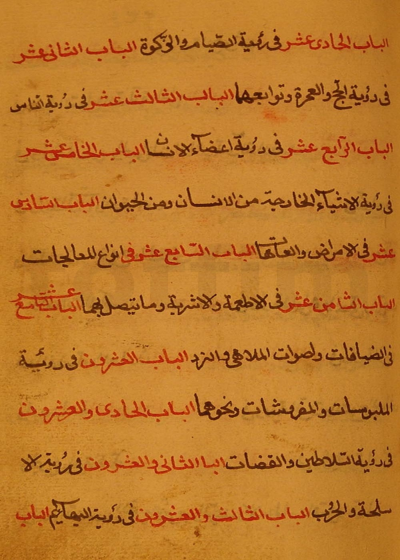 الباب الحادى عشر فى رؤية الصيام والزكوة الباب الثانى عشر
فى رؤية الحج والعمرة وتوابعهما الباب الثالث عشر فى رؤية الناس
الباب الرابع عشر فى رؤية اعضاء الانسان الباب الخامس عشر
فى رؤية الاشياء الخارجية من الانسان ومن الحيوان الباب السادس
عشر فى الامراض والعاهات الباب السابع عشر فى انواع المعالجات
الباب الثامن عشر فى الاطعمة والاشربة وما يتصل بهما الباب التاسع عشر
فى الضيافات واصوات الملاهى والنرد الباب العشرون فى رؤية
الملبوسات والمفروشات ونحوهما الباب الحادى والعشرون
فى رؤية السلاطين والقضات البا الثانى والعشرون فى رؤية الا
سلحة والحرب الباب الثالث والعشرون فى رؤية البهايم الباب